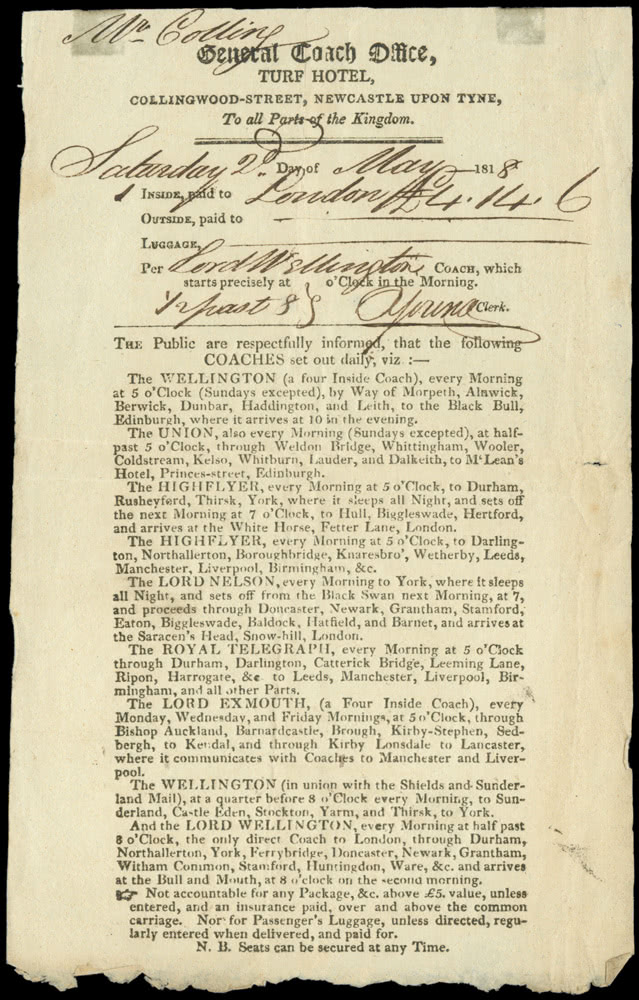 Mr. Collins
General Coach Office,
TURF HOTEL,
COLLINGWOOD-STREET, NEWCASTLE UPON TYNE,
To all Parts of the Kingdom.
Saturday 2d. Day of May 1818
1 INSIDE, paid to London £4.14.6
OUTSIDE, paid to
LUGGAGE,
Per Lord Wellington COACH, which
starts precisely at o'Clock in the Morning.
1/2 past 8 Young Clerk.
THE Public are respectfully informed, that the following
COACHES set out daily, viz :—
The WELLINGTON (a four Inside Coach), every Morning
at 5 o'Clock (Sundays excepted), by Way of Morpeth, Alnwick,
Berwick, Dunbar, Haddington, and Leith, to the Black Bull,
Edinburgh, where it arrives at 10 in the evening.
The UNION, also every Morning (Sundays excepted), at half-
past 5 o'Clock, through Weldon Bridge, Whittingham, Wooler,
Coldstream, Kelso, Whitburn, Lauder, and Dalkeith, to McLean's
Hotel, Princes-street, Edinburgh.
The HIGHFLYER, every Morning at 5 o'Clock, to Durham,
Rusheyford, Thirsk, York, where it sleeps all Night, and sets off
the next Morning at 7 o'Clock, to Hull, Biggleswade, Hertford,
and arrives at the White Horse, Fetter Lane, London.
The HIGHFLYER, every Morning at 5 o'Clock, to Darling-
ton, Northallerton, Boroughbridge, Knaresbro', Wetherby, Leeds,
Manchester, Liverpool, Birmingham, &c.
The LORD NELSON, every Morning to York, where it sleeps
all Night, and sets off from the Black Swan next Morning, at 7,
and proceeds through Doncaster, Newark, Grantham, Stamford,
Eaton, Biggleswade, Baldock, Hatfield, and Barnet, and arrives at
the Saracen's Head, Snow-hill, London.
The ROYAL TELEGRAPH, every Morning at 5 o'Clock
through Durham, Darlington, Catterick Bridge, Leeming Lane,
Ripon, Harrogate, &c to Leeds, Manchester, Liverpool, Bir-
mingham, and all other Parts.
The LORD EXMOUTH, (a Four Inside Coach), every
Monday, Wednesday, and Friday Mornings, at 5 o'Clock, through
Bishop Auckland, Barnardcastle, Brough, Kirby-Stephen, Sed-
bergh, to Kendal, and through Kirby Lonsdale to Lancaster,
where it communicates with Coaches to Manchester and Liver-
pool.
The WELLINGTON (in union with the Shields and Sunder-
land Mail), at a quarter before 8 o'Clock every Morning, to Sun-
derland, Castle Eden, Stockton, Yarm, and Thirsk, to York.
And the LORD WELLINGTON, every Morning at half past
8 o'Clock, the only direct Coach to London, through Durham,
Northallerton, York, Ferrybridge, Doncaster, Newark, Grantham,
Witham Common, Stamford, Huntingdon, Ware, &c. and arrives
at the Bull and Mouth, at 8 o'clock on the second morning.
☞ Not accountable for any Package, &c. above £5. value, unless
entered, and an insurance paid, over and above the common
carriage. Nor for Passenger's Luggage, unless directed, regu-
larly entered when delivered, and paid for.
N. B. Seats can be secured at any Time.